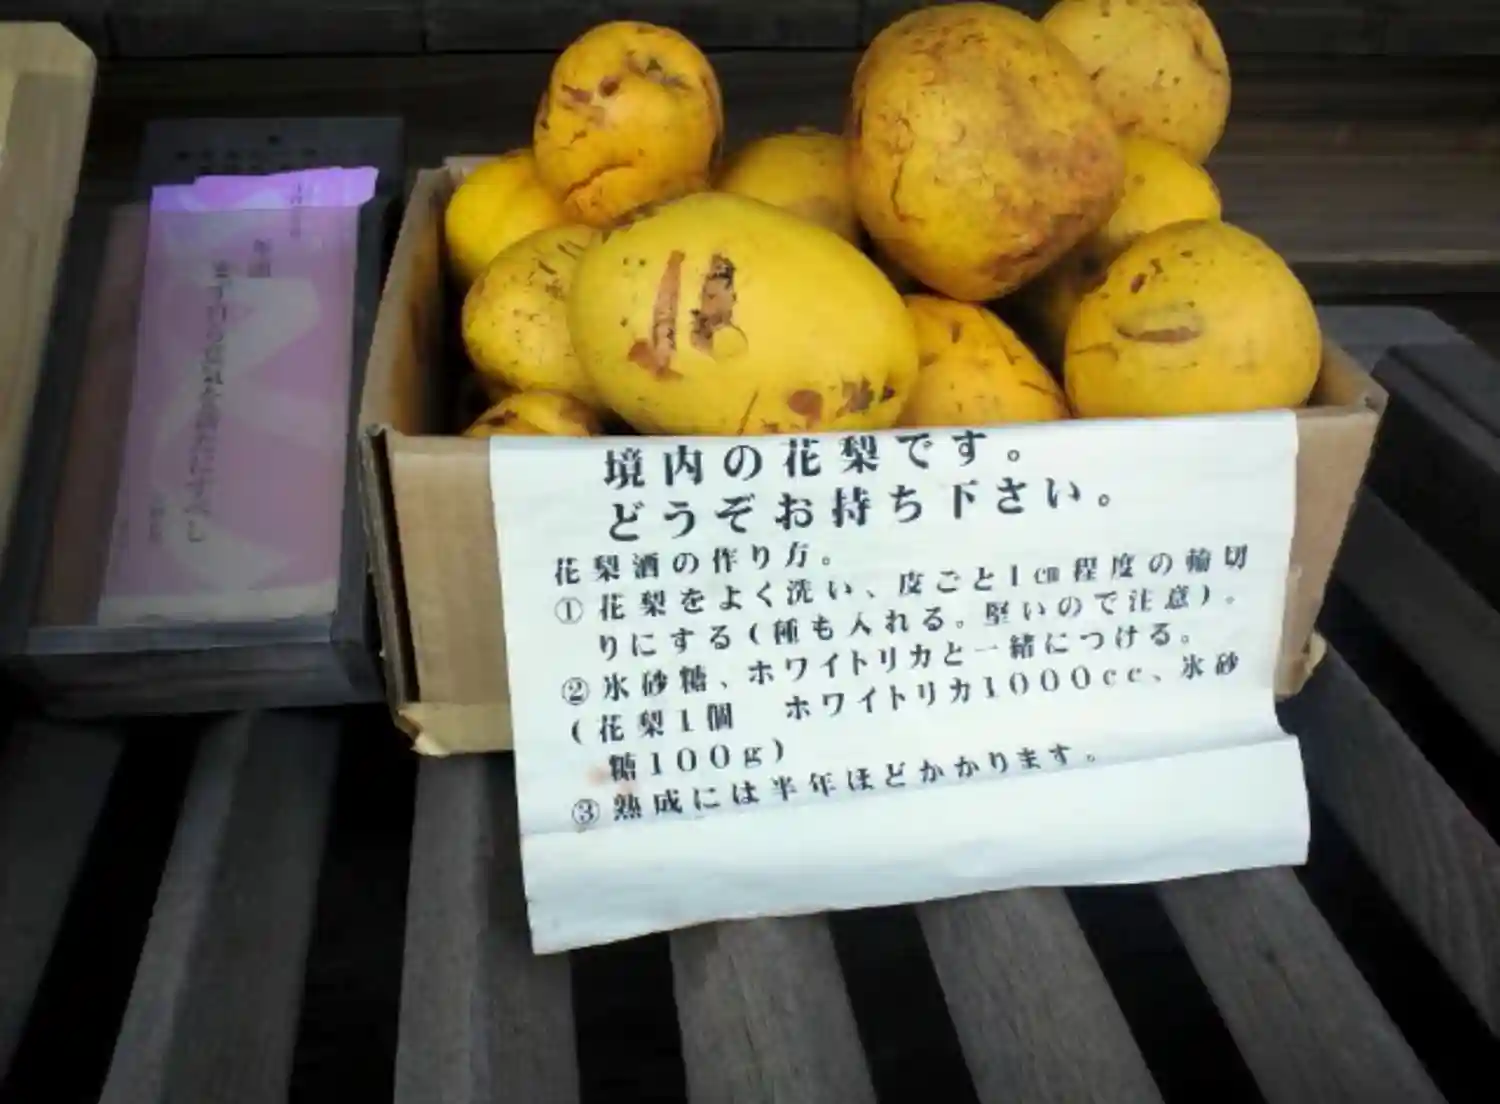 境内の花梨です。
どうぞお持ち下さい。
花梨酒の作り方。
①花梨をよく洗い、皮ごと1㎝程度の輪切
りにする(種も入れる。堅いので注意)。
②氷砂糖、ホワイトリカと一緒につける。
(花梨1個　ホワイトリカ1000cc、氷砂
糖100g)
③熟成には半年ほどかかります。